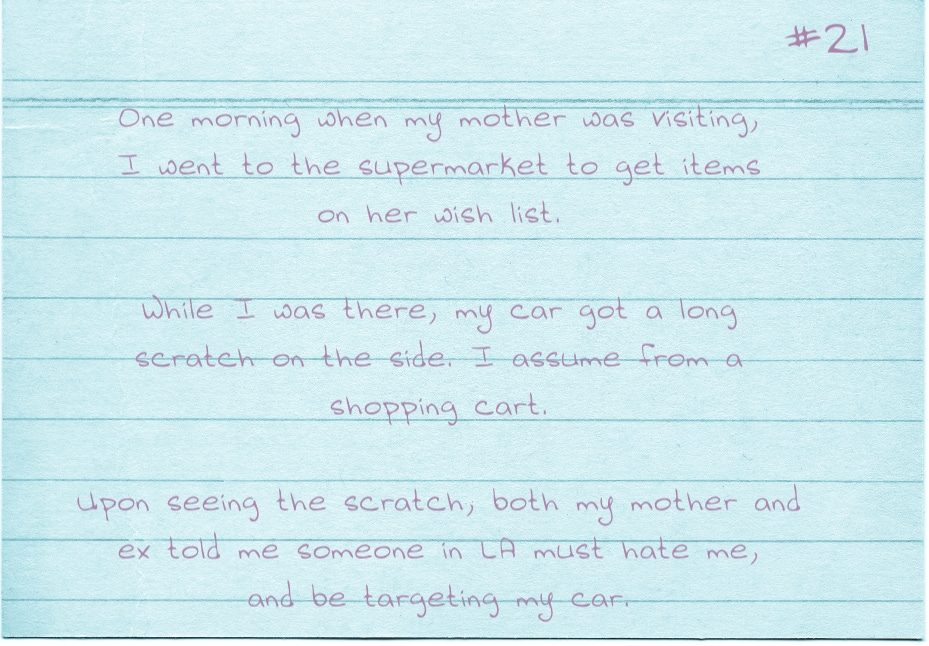 #21
One morning when my mother was visiting,
I went to the supermarket to get items
on her wish list.
While I was there, my car got a long
scratch on the side. I assume from a
shopping cart.
Upon seeing the scratch, both my mother and
ex told me someone in LA must hate me,
and be targeting my car.